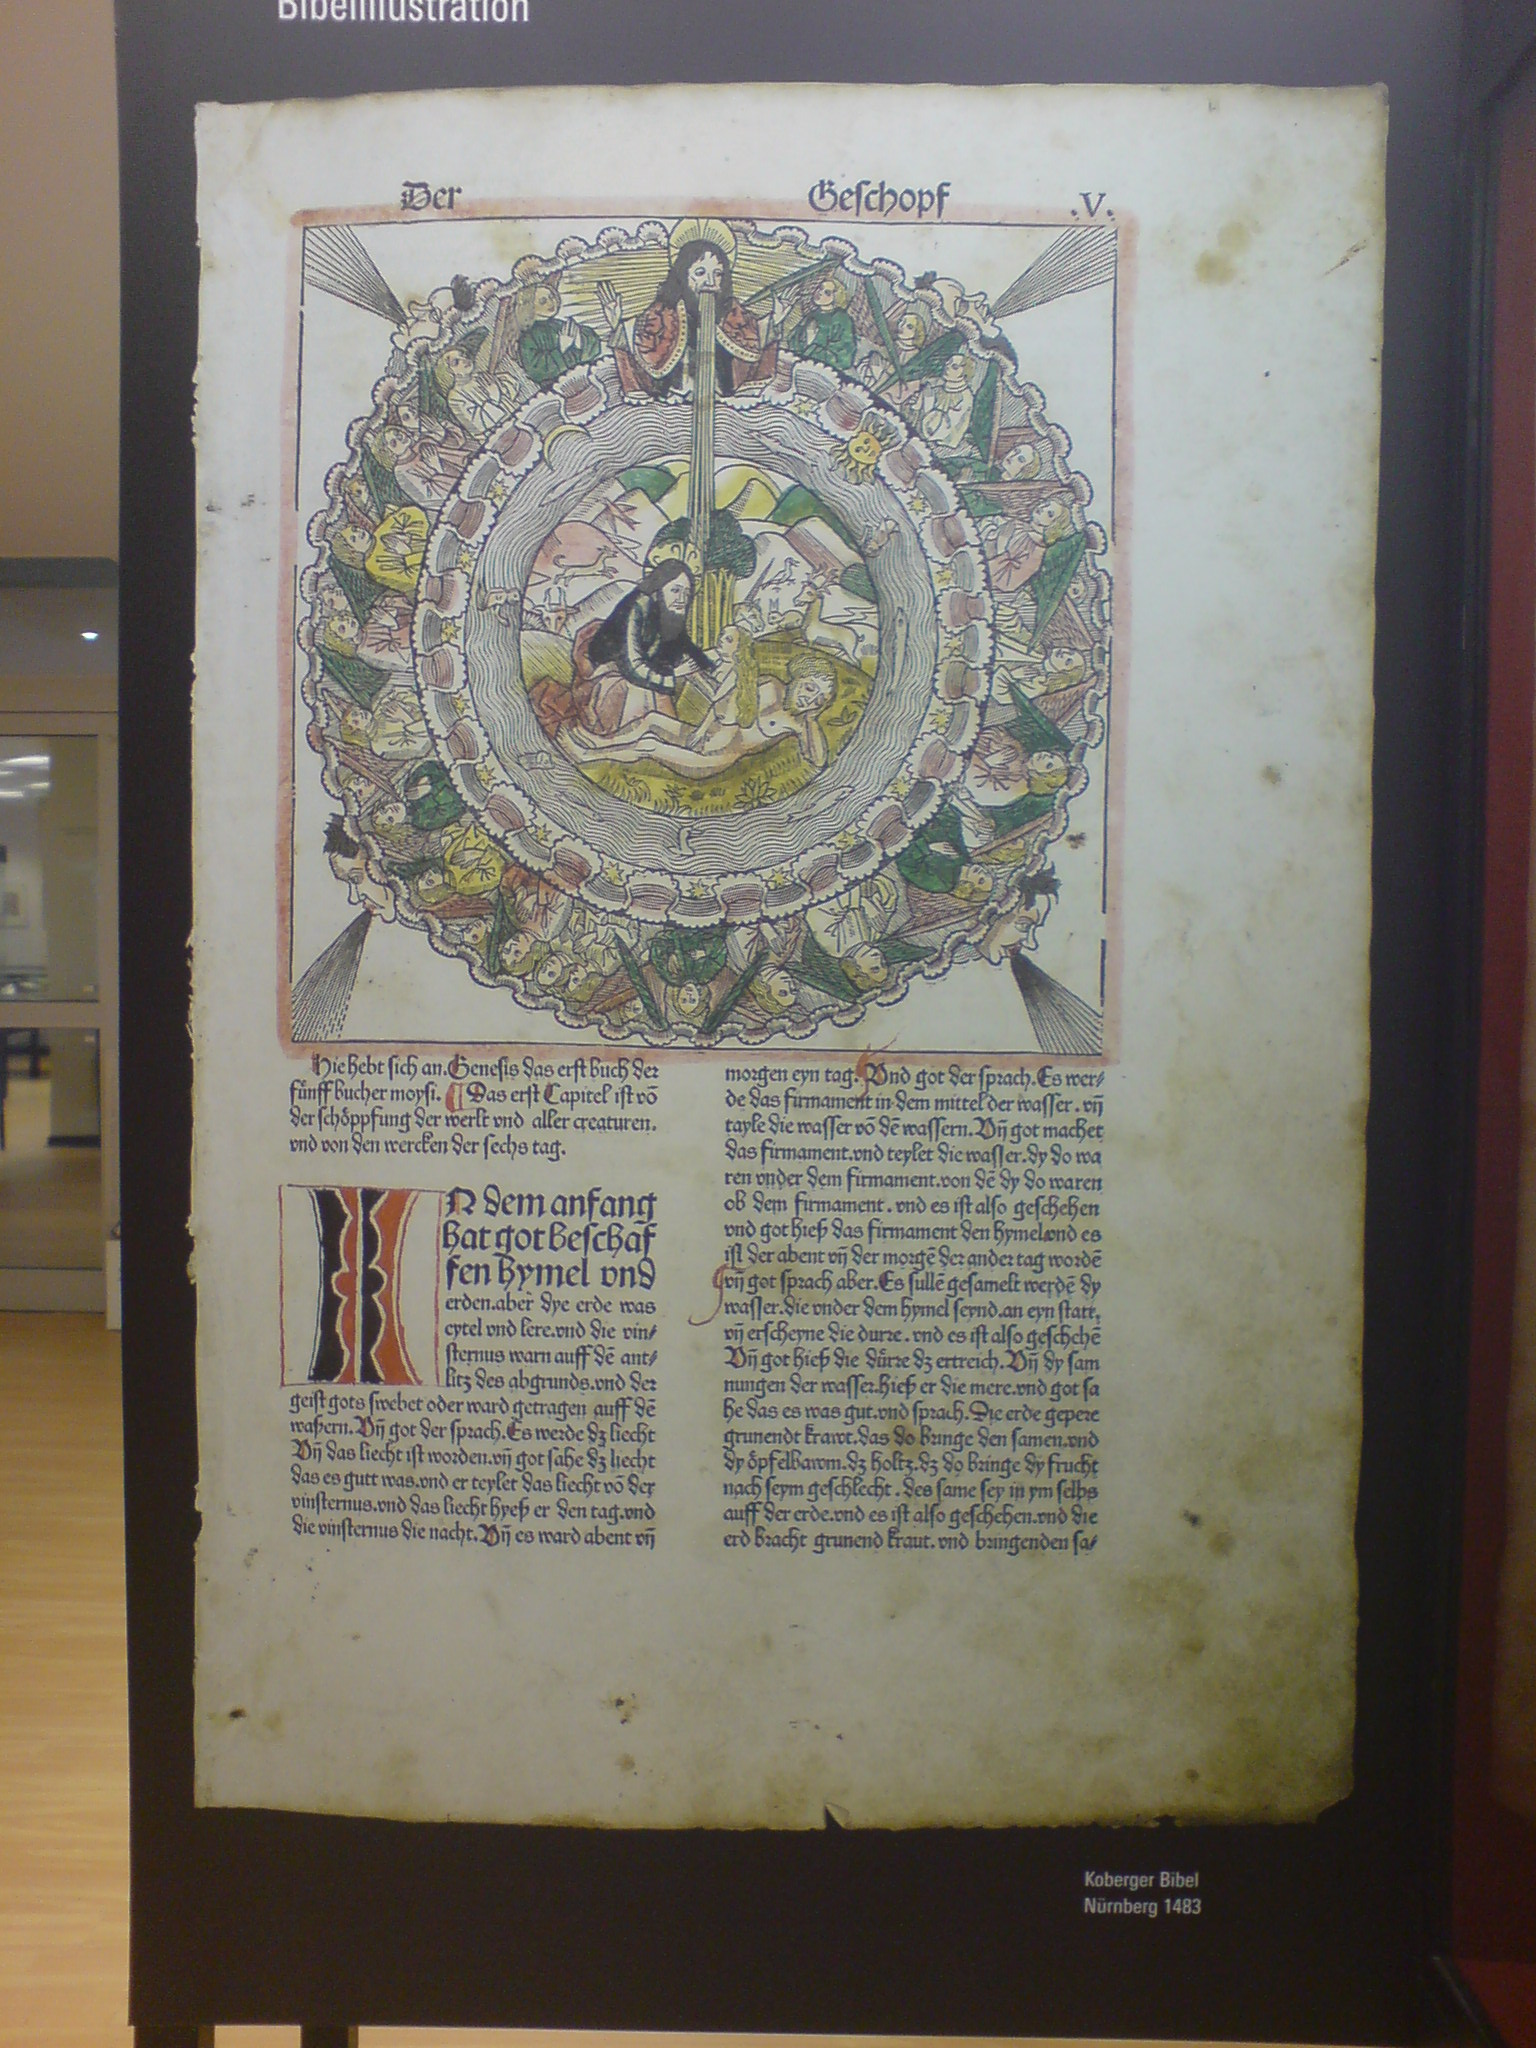 Bibelillustration
Der Geschopf .V.
Hie hebt sich an. Genesis das erst buch der
fünff bucher moysi. Das erst Capitel ist vō
der schöppfung der werlt vnd aller creaturen.
vnd von den wercken der sechs tag.
IN dem anfang
hat got beschaf
fen hymel vnd
erden. aber dye erde was
eytel vnd lere. vnd die vin/
sternus warn auff dē ant/
litz des abgrunds. vnd der
geist gots swebet oder ward getragen auff dē
waßern. Vn̄ got der sprach. Es werde dz liecht
Vn̄ das liecht ist worden. vn̄ got sahe dz liecht
das es gutt was. vnd er teylet das liecht vō der
vinsternus. vnd das liecht hyeß er den tag. vnd
die vinsternus die nacht. Vn̄ es ward abent vn̄
morgen eyn tag. Vnd got der sprach. Es wer/
de das firmament in dem mittel der wasser. vn̄
tayle die wasser vō dē wassern. Vn̄ got machet
das firmament. vnd teylet die wasser. dy do wa
ren vnder dem firmament. von dē dy do waren
ob dem firmament. vnd es ist also geschehen
vnd got hieß das firmament den hymel. vnd es
ist der abent vn̄ der morgē der ander tag wordē
vn̄ got sprach aber. Es sullē gesamelt werdē dy
wasser. die vnder dem hymel seynd. an eyn statt.
vn̄ erscheyne die durre. vnd es ist also geschehē
Vn̄ got hieß die dürre dz ertreich. Vn̄ dy sam
nungen der wasser. hieß er die mere. vnd got sa
he das es was gut. vnd sprach. Die erde gepere
grunendt krawt. das do bringe den samen. vnd
dy öpfelbawm. dz holtz. dz do bringe dy frucht
nach seym geschlecht. des same sey in ym selbs
auff der erde. vnd es ist also geschehen. vnd die
erd bracht grunend kraut. vnd bringenden sa/
Koberger Bibel
Nürnberg 1483